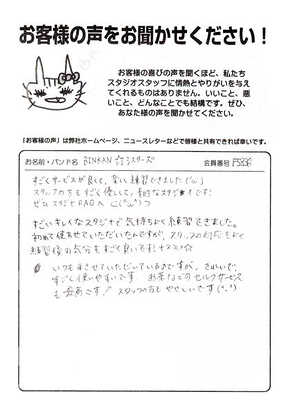 お客様の声をお聞かせください！
お客様の喜びの声を聞くほど、私たち
スタジオスタッフに情熱とやりがいを与え
てくれるものはありません。いいこと、悪
いこと、どんなことでも結構です。ぜひ、
あなた様の声を聞かせてください。
「お客様の声」は弊社ホームページ、ニュースレターなどで皆様と共有できれば幸いです。
お名前・バンド名 BINKAN☆シスターズ 会員番号
すごくサービスが良くて、楽しく練習できました(^^)
スタッフの方もすごく優しくて、素的なスタジオです!
すごいキレイなスタジオで気持ちよく練習できました。
初めて使わせていただいたんですが、スタッフの対応もよく
練習後の気分もすごく良いです!
いつも使わせていただいているのですが、きれいで、
すごく使いやすいです お茶などのセルフサービス
も最高です! スタッフの方もやさしいです(^^)